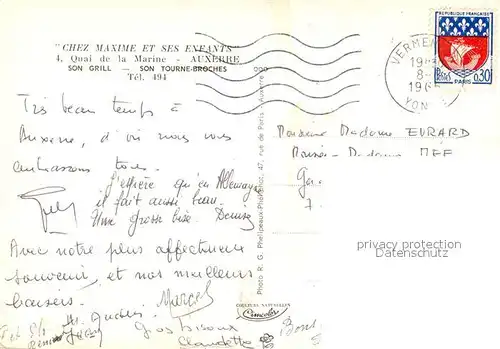 "CHEZ MAXIME ET SES ENFANTS"
4, Quai de la Marine - AUXERRE
SON GRILL — SON TOURNE-BROCHES
Tél. 494
Très beau temps à
Auxerre, d'où nous vous
embrassons tous.
J'espère qu'en Allemagne
il fait aussi beau.
Une grosse bise. Denise
Avec notre plus affectueux
souvenir, et nos meilleurs
baisers. Marcel
Gros bisoux
Claudette
Bons
Photo R. G. Phelipeaux-Photoproc, 47, rue de Paris - Auxerre
COULEURS NATURELLES
REPUBLIQUE FRANÇAISE
POSTES
0,30
PARIS
VERMEN
19
8-
196
YON
Monsieur Madame EVRARD
Monsieur - Madame
7
privacy protection
Datenschutz